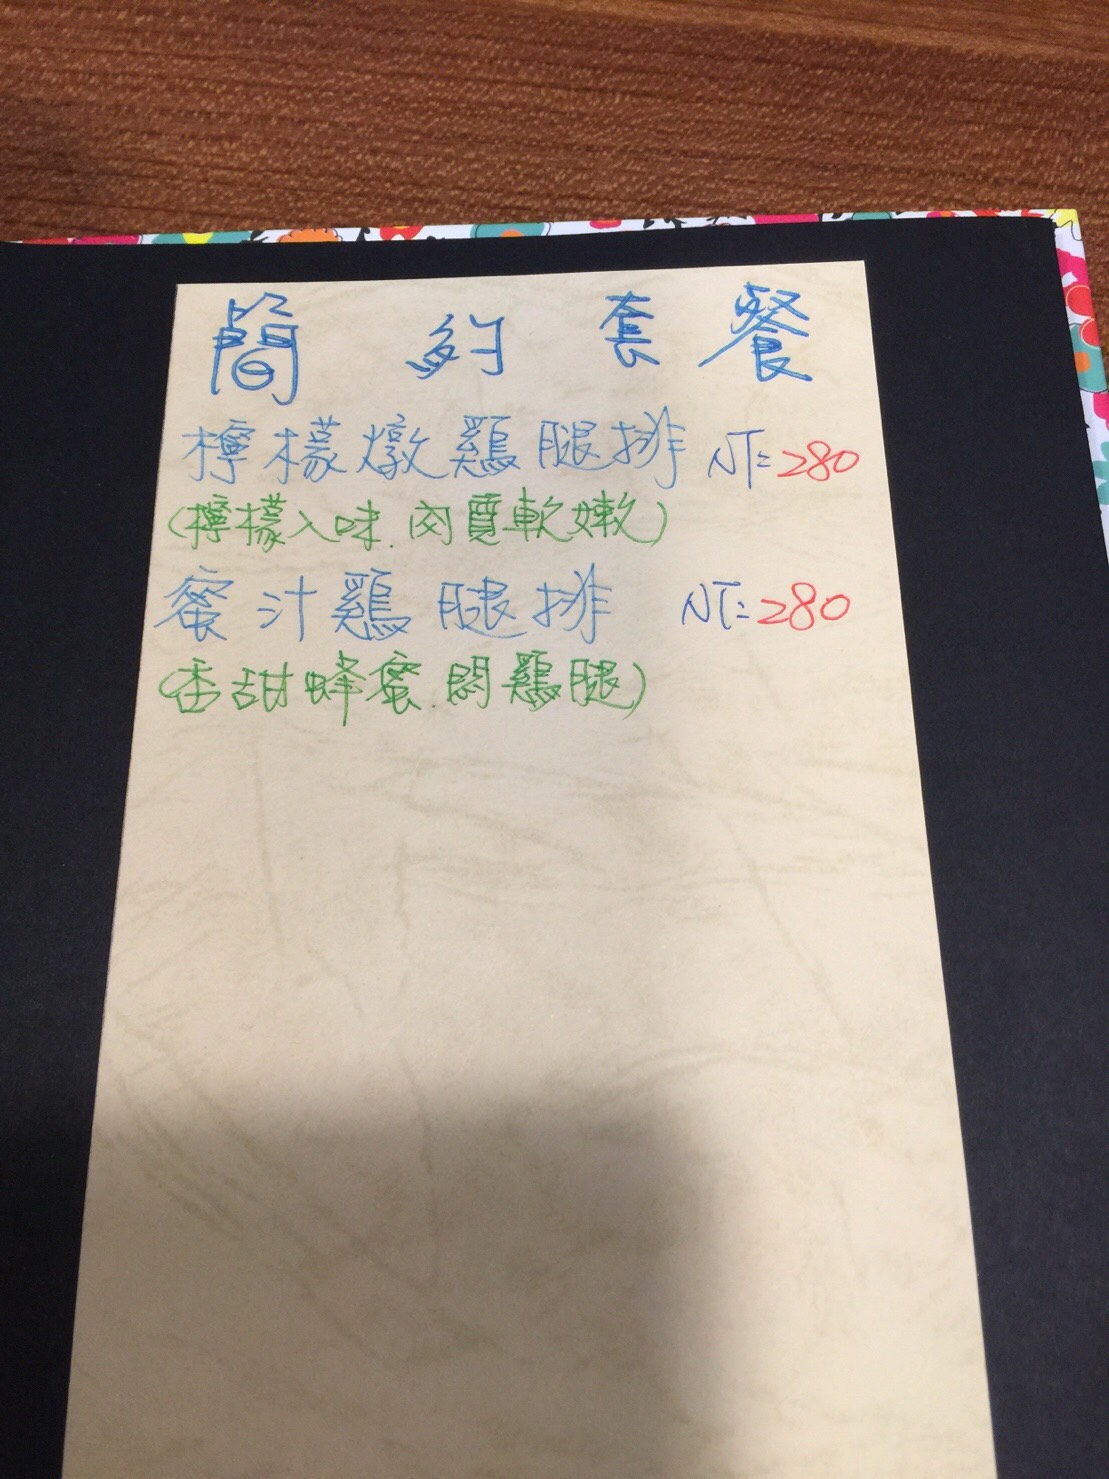 簡約套餐
檸檬燉鷄腿排 NT:280
(檸檬入味.肉質軟嫩)
蜜汁鷄腿排 NT:280
(香甜蜂蜜.悶鷄腿)